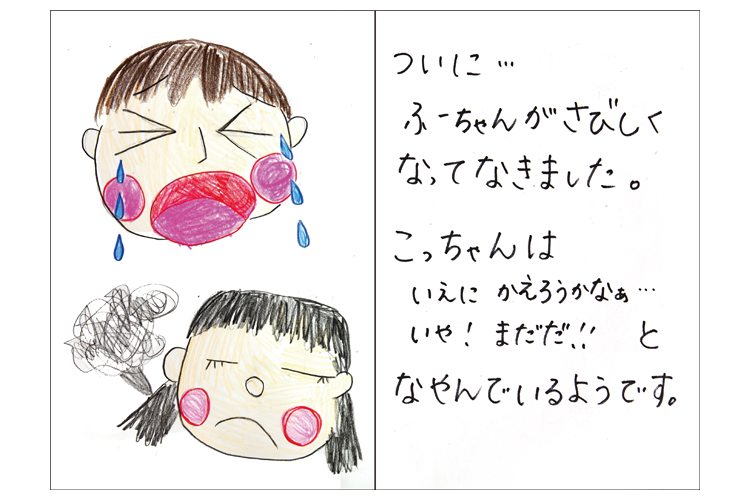 ついに…
ふーちゃんがさびしく
なってなきました。
こっちゃんは
いえに かえろうかなぁ…
いや! まだだ!! と
なやんでいるようです。